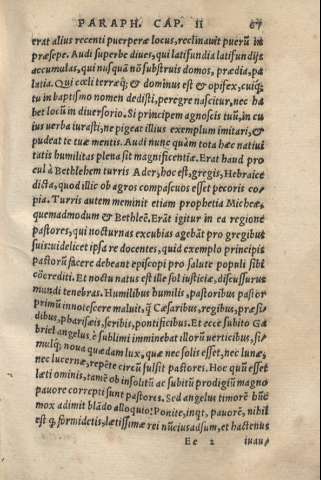 PARAPH. CAP. II 67
erat alius recenti puerperæ locus, reclinauit puerũ in
præsepe. Audi superbe diues, qui latifundia latifundijs
accumulas, qui nusquã nõ substruis domos, prædia, pa
latia. Qui cœli terræq; & dominus est & opifex, cuiq;
tu in baptismo nomen dedisti, peregre nascitur, nec ha
bet locũ in diuersorio. Si principem agnoscis tuũ, in cu
ius verba iurasti, ne pigeat illius exemplum imitari, &
pudeat te tuæ mentis. Audi nunc quàm tota hæc natiui
tatis humilitas plena sit magnificentiæ. Erat haud pro
cul à Bethlehem turris Ader, hoc est, gregis, Hebraice
dicta, quod illic ob agros compascuos esset pecoris co
pia. Turris autem meminit etiam prophetia Micheæ,
quemadmodum & Bethleē. Erãt igitur in ea regione
pastores, qui nocturnas excubias agebãt pro gregibus
suis: videlicet ipsa re docentes, quid exemplo principis
pastorũ facere debeant episcopi pro salute populi sibi
cõcrediti. Et noctu natus est ille sol iusticiæ, discussurus
mundi tenebras. Humilibus humilis, pastoribus pastor
primũ innotescere maluit, q̃ Cæsaribus, regibus, præsi
dibus, pharisæis, scribis, pontificibus. Et ecce subito Ga
briel angelus è sublimi imminebat illorũ verticibus, si
mulq; noua quædam lux, quæ nec solis esset, nec lunæ,
nec lucernæ, repēte circũ fulsit pastores. Hoc quũ esset
læti ominis, tamē ob insolitũ ac subitũ prodigiũ magno
pauore correpti sunt pastores. Sed angelus timorē hũc
mox adimit blãdo alloquio: Ponite, inqt, pauorē, nihil
est q, formidetis, lætissimæ rei nũcius adsum, et hactenus
Ee 2 iuau,